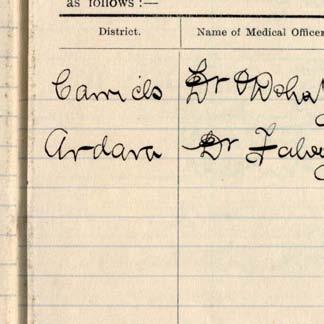 as follows :—
District. Name of Medical Officer
Carrick Dr O'Doha
Ardara Dr Falvey